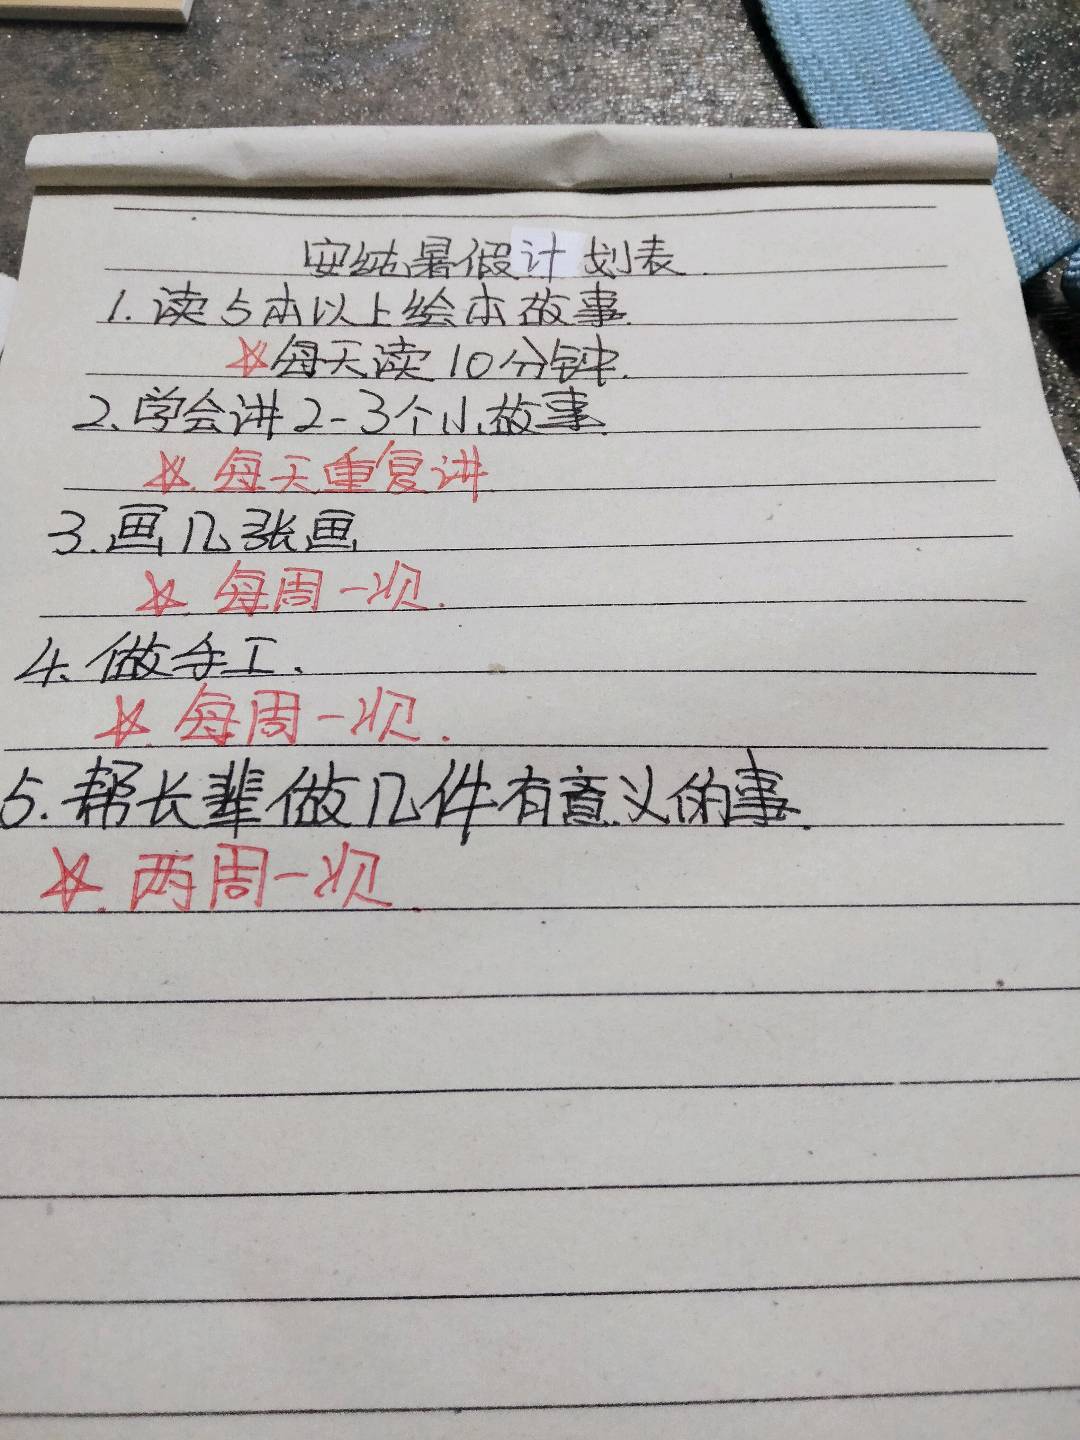 安纯暑假计划表.
1.读5本以上绘本故事.
☆每天读10分钟.
2、学会讲2-3个小故事.
☆.每天重复讲
3.画几张画
☆.每周一次.
4、做手工、
☆.每周一次.
5.帮长辈做几件有意义的事.
☆.两周一次.